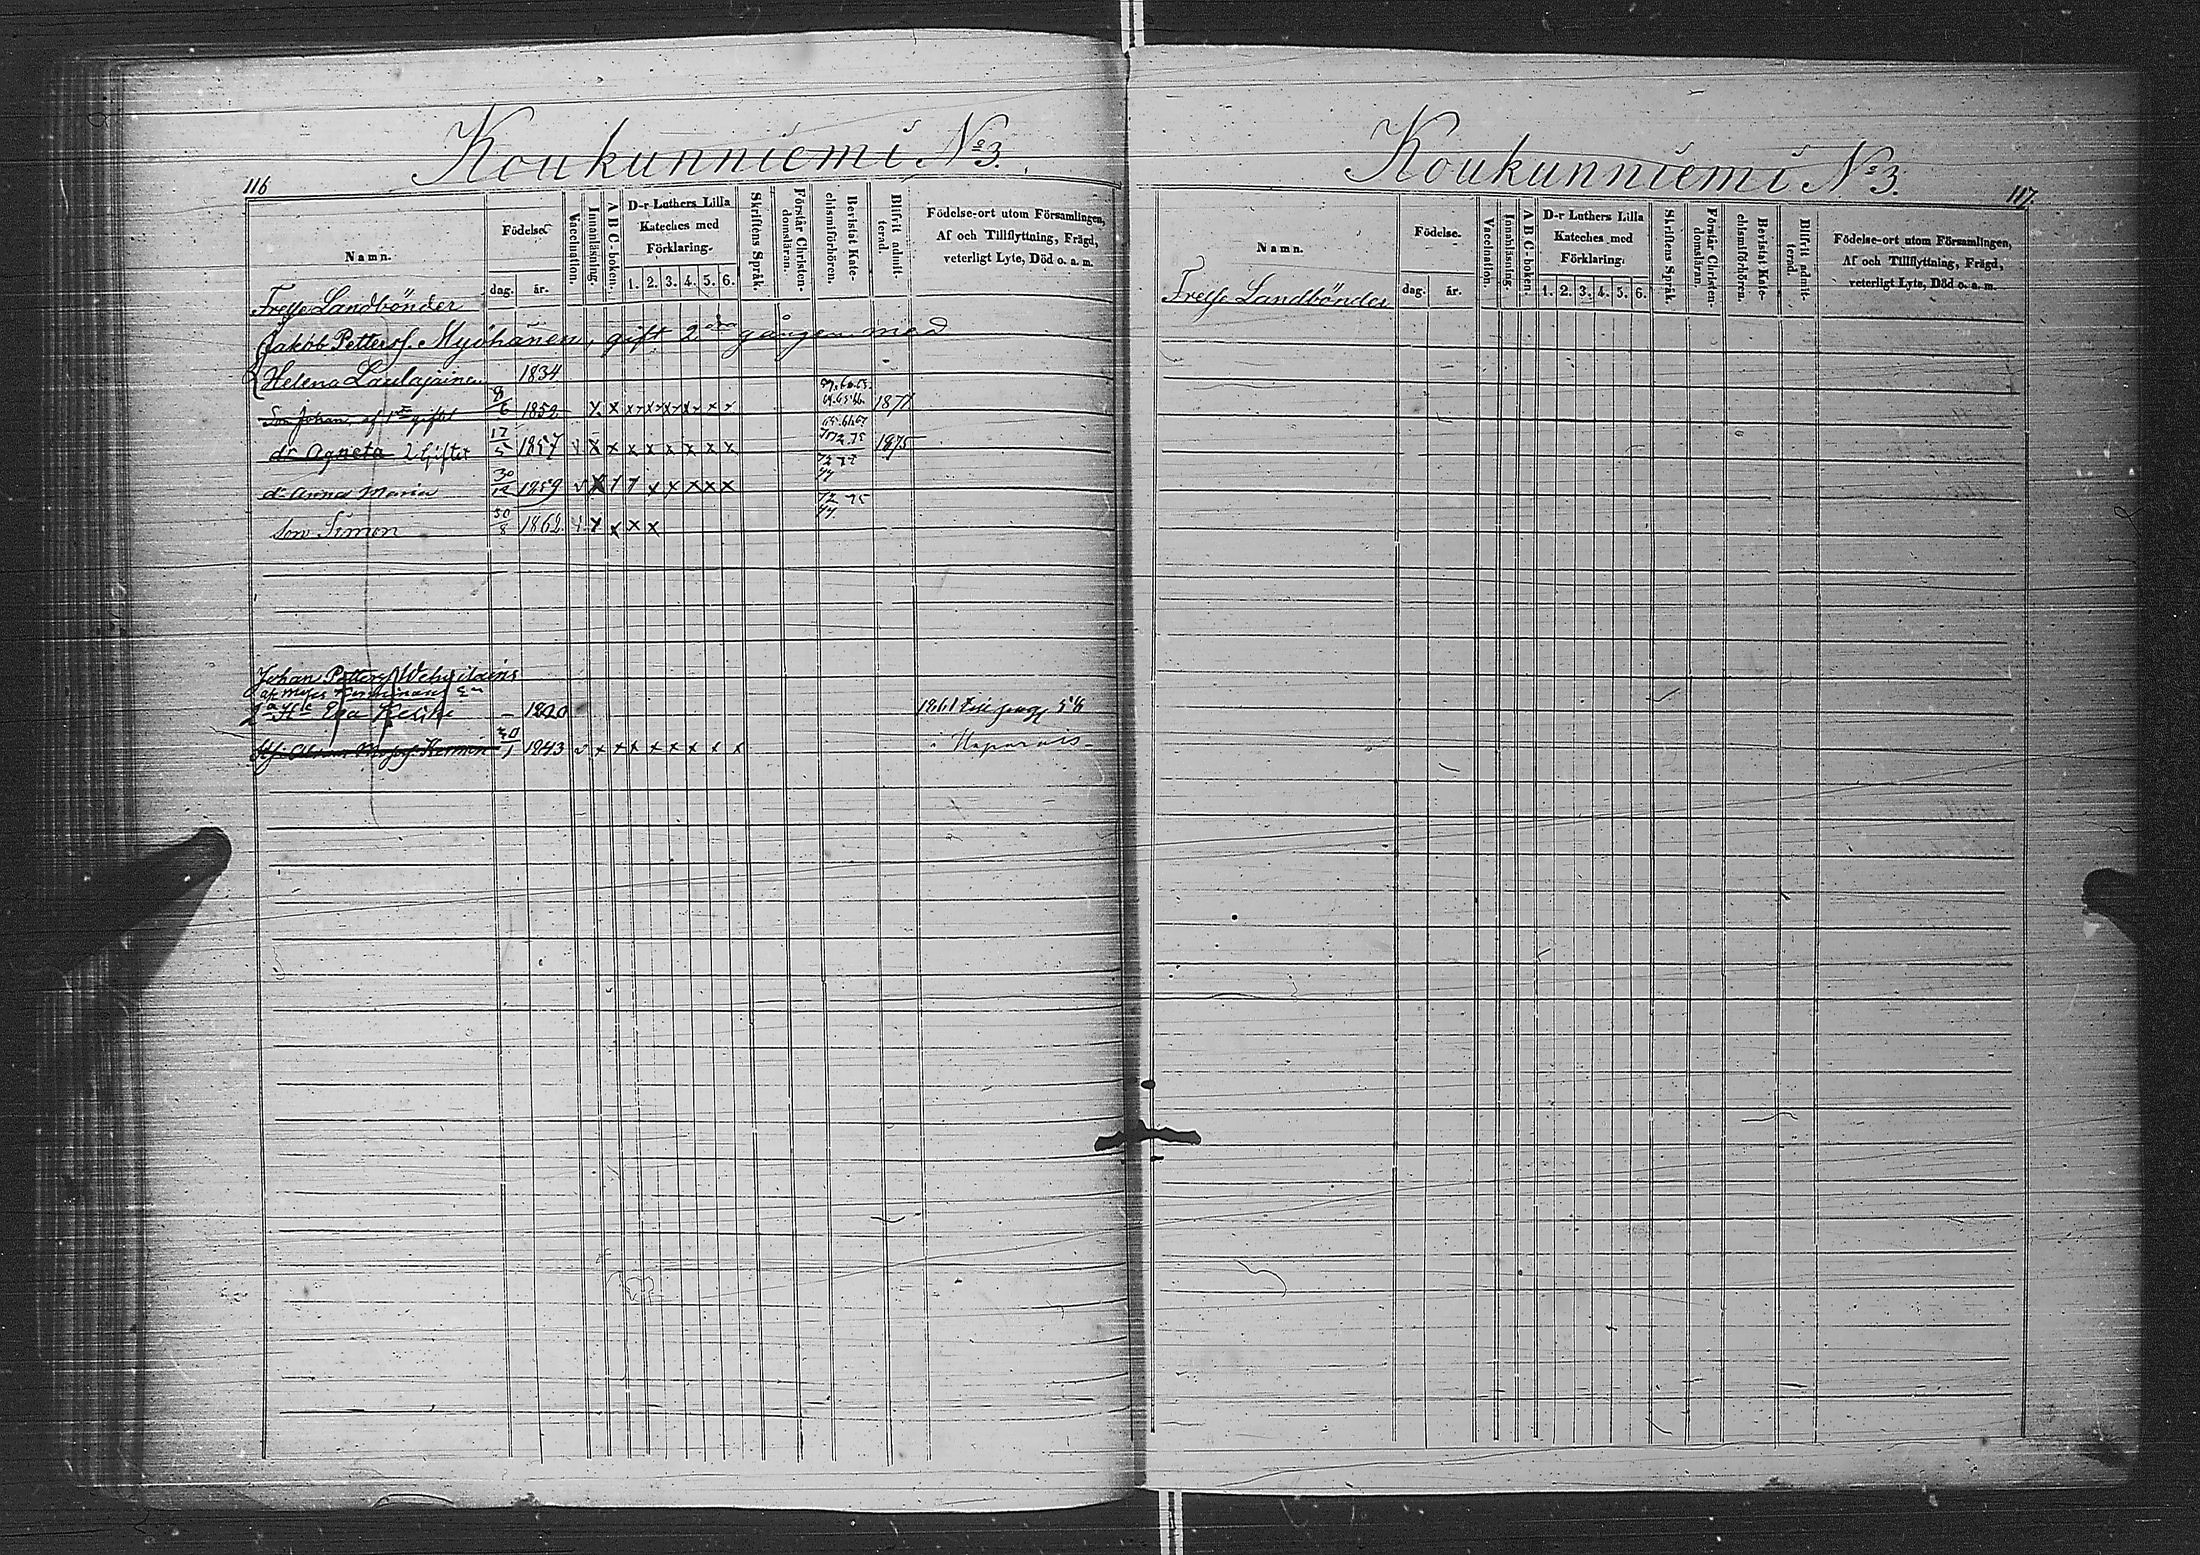 116
Koukunniemi No 3.
Namn.
Födelse.
dag.
år.
Vaccination.
Innanläsning.
A B C-boken.
D-r Luthers Lilla
Kateches med
Förklaring.
1. 2. 3. 4. 5. 6.
Skriftens Språk.
Förstår Christen-
domsläran.
Bevistat Kate-
chismiförhören.
Blifvit admit-
terad.
Födelse-ort utom Församlingen,
Af och Tillflyttning, Frägd,
veterligt Lyte, Död o. a. m.
Frelse Landbönder
Jakob Petterss. Myöhänen, gift 2 dra gången med
Helena Laulajainen 1834
Son Johan af 1 giftet 1852 1871
dr Agneta 2 giftet 17/5 1857 1875
dr Anna Maria 30/12 1859
Son Simon 30/8 1862
Johan Petterss
Eva 1820 1861
1843
Koukunniemi No 3.
117.
Namn.
Födelse.
dag.
år.
Vaccination.
Innanläsning.
A B C-boken.
D-r Luthers Lilla
Kateches med
Förklaring.
1. 2. 3. 4. 5. 6.
Skriftens Språk.
Förstår Christen-
domsläran.
Bevistat Kate-
chismiförhören.
Blifvit admit-
terad.
Födelse-ort utom Församlingen,
Af och Tillflyttning, Frägd,
veterligt Lyte, Död o. a. m.
Frelse Landbönder